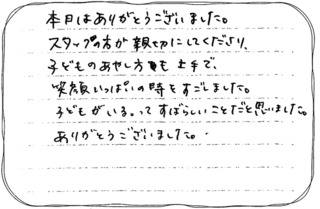 本日はありがとうございました。
スタッフの方が親切にしてくださり、
子どものあやし方も上手で、
笑顔いっぱいの時をすごしました。
子どもがいる。って すばらしいことだと思いました。
ありがとうございました。